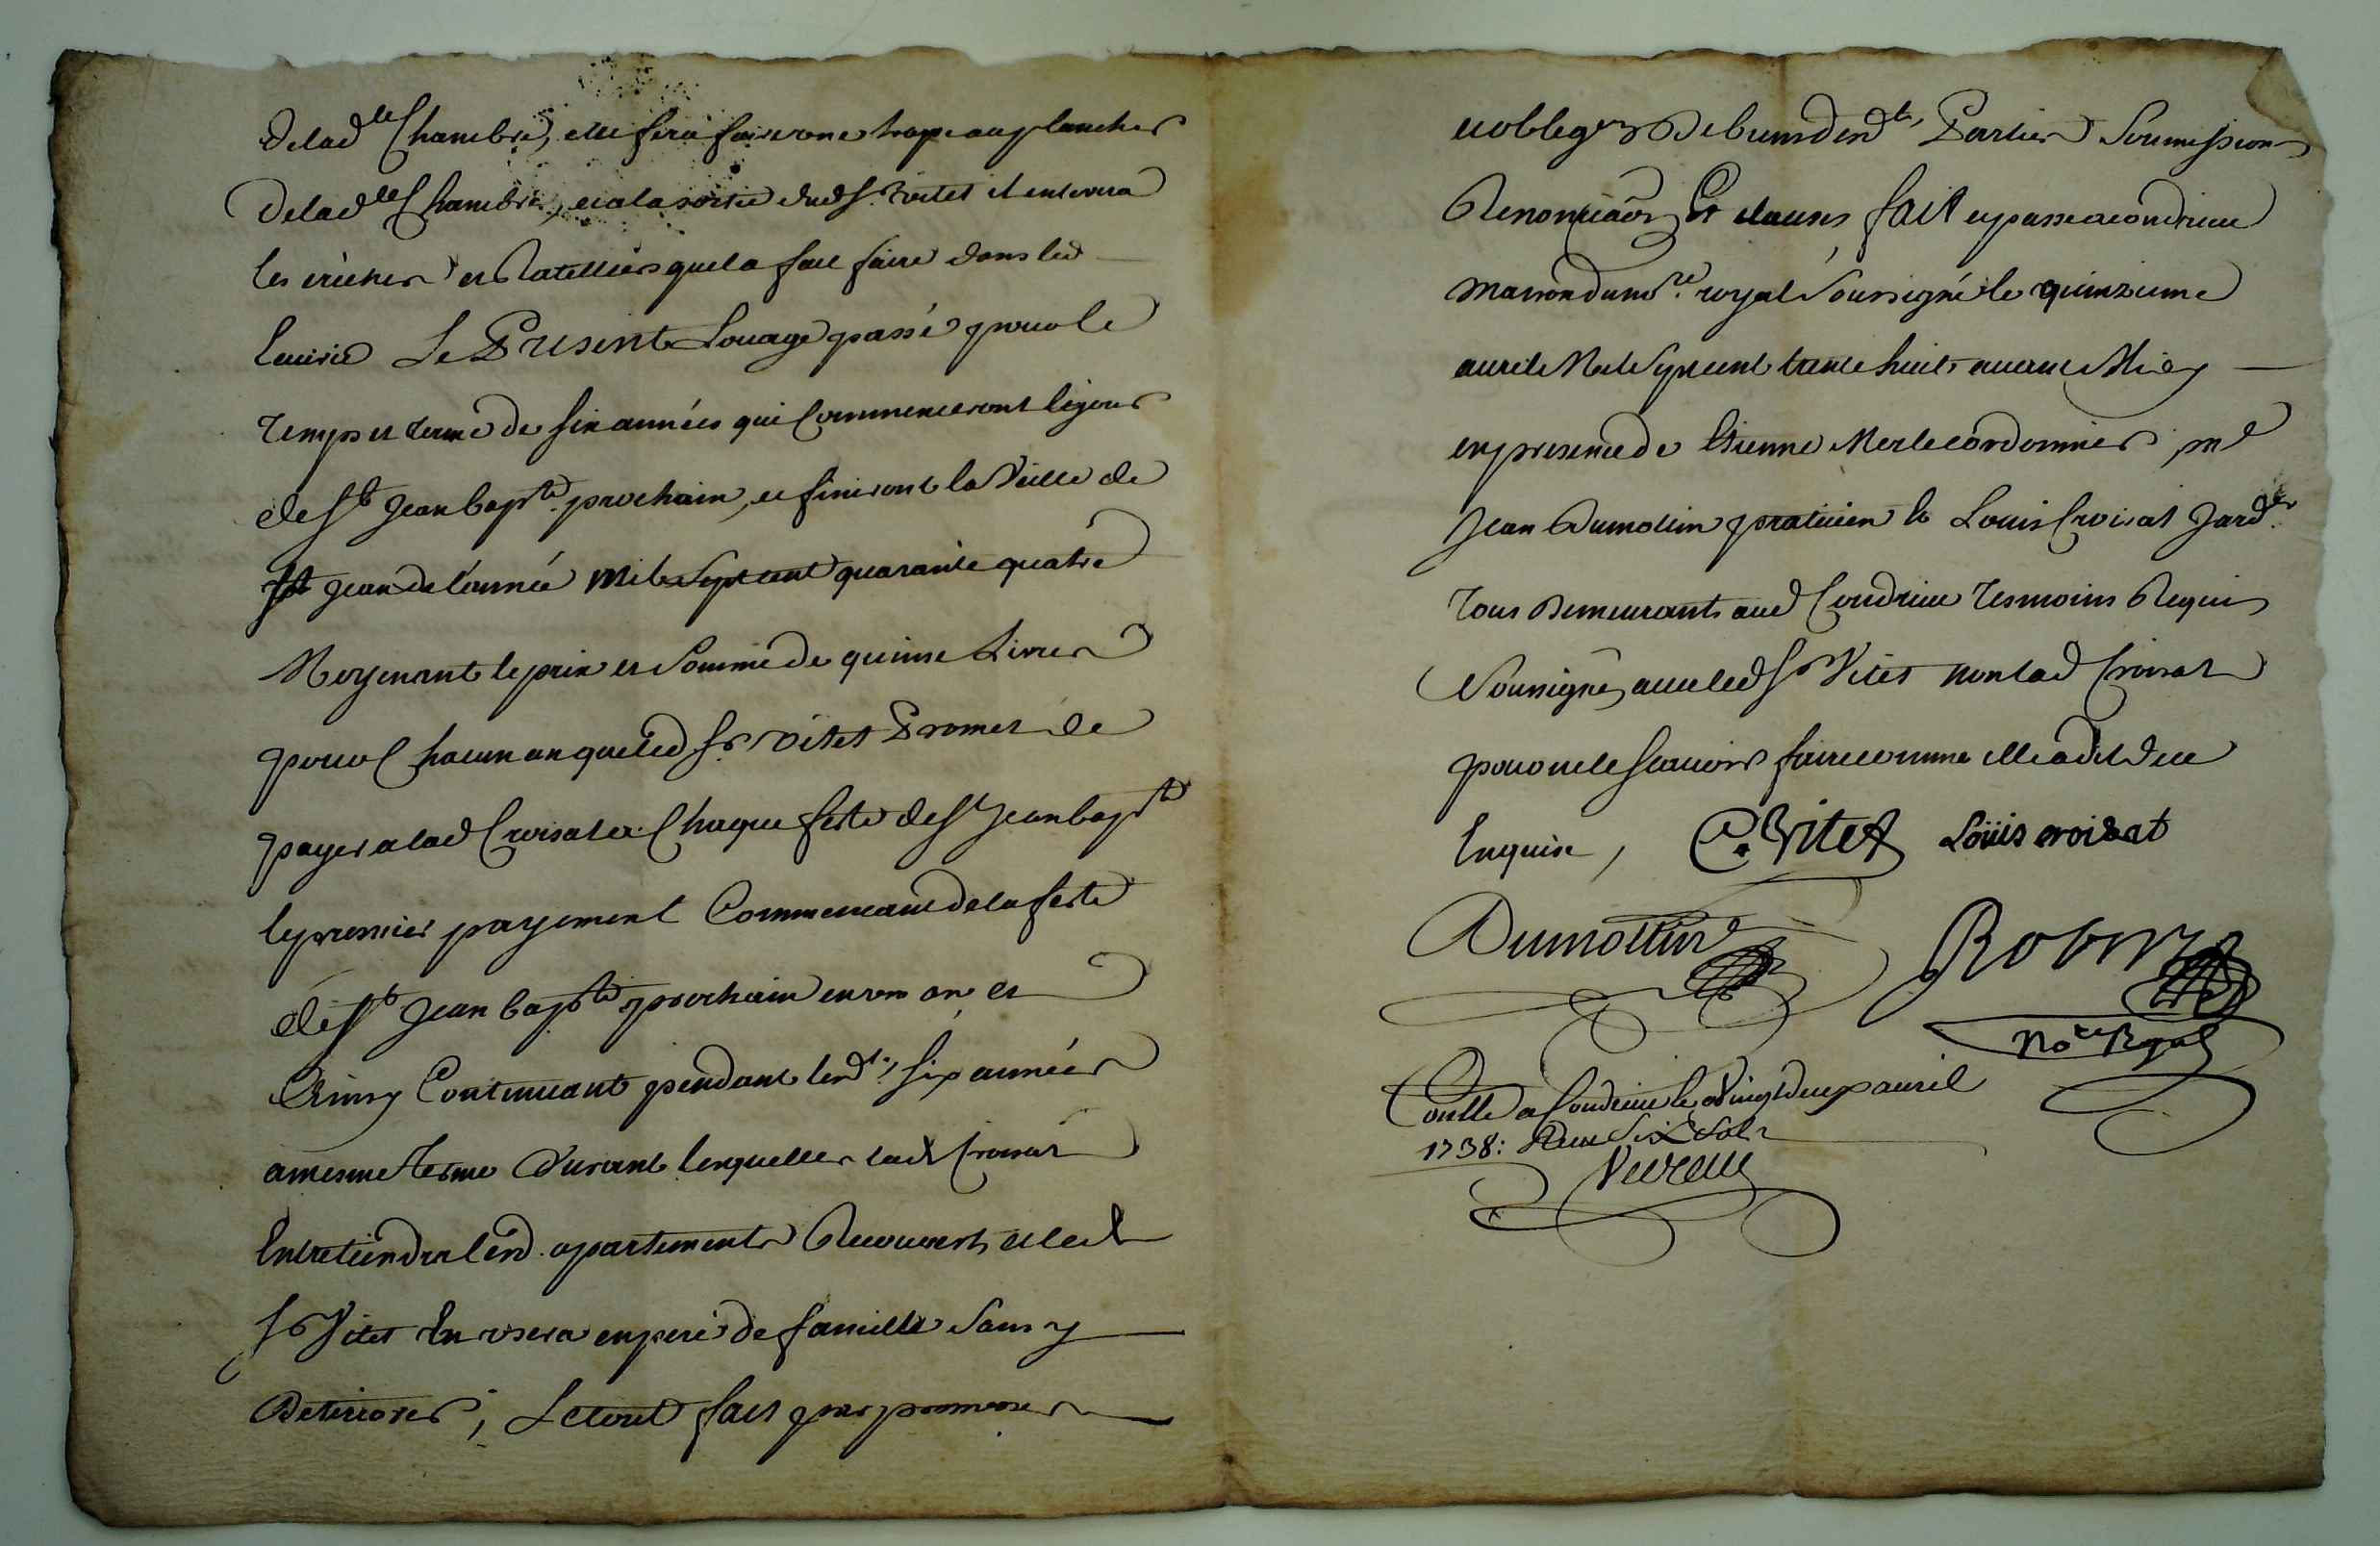 delad.lle Chambre, elle fera faire une trape au plancher
delad.lle Chambre, et a la sortie dud Sr. Vitet il enlevera
les crêches et Rateliers quel a fait faire dans lad
Ecurie Le Present Louage passé pour le
temps et terme de six années qui Commenceront le jour
de St Jean bapte. prochain, et finiront la Veille de
St Jean de l'année mil sept cent quarante quatre
Moyenant le prix et Somme de quinse Livres
pour Chacun an que led Sr. Vitet Promet de
payer a lad Croisat a Chaque feste de St Jean bapte
le premier payement Commencant de la feste
de St Jean bapte prochain en un an et
Ainsy Continuant pendant lesdts. six années
a mesme terme Durant lesquelles lad Croisat
Entretiendra lesd. apartements Recouverts et led
Sr Vitet En usera en pere de famille Sans y
Deteriorer, Le tout fait par promesses
et obligons De biens desdts. Parties Soumissions
Renonciaõns Et clauses fait et passe a condrieu
maison du nore. royal Soussigné le quinzieme
avril Mil Sept cent trente huit avant Midy
en presence de Etienne Merle cordonnier, md
Jean Dumollin praticien et Louis Croisat Jarder.
Tous Demeurants aud Condrieu Tesmoins Requis
Soussignés avec led Sr Vitet non lad Croisat
pour ne le Scavoir faire comme elle a dit de ce
Enquise, C. Vitet Loüis croisat
Dumollin Robin
nore Royal
Conllé a Condrieu le Vingt deux avril
1738: Reçu Six Sols